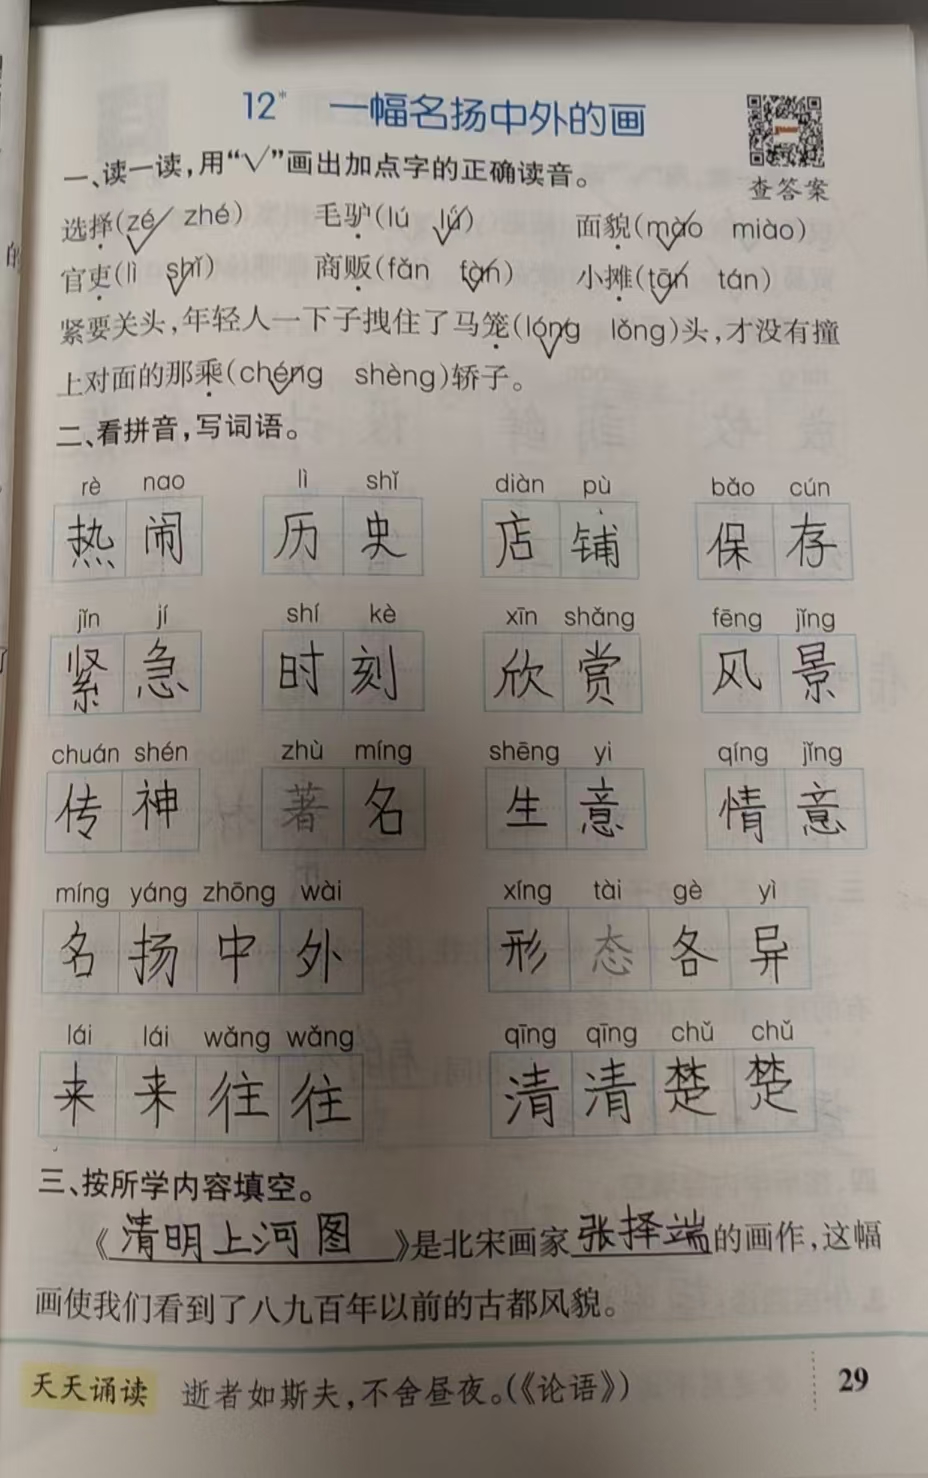 12* 一幅名扬中外的画
查答案
一、读一读,用“√”画出加点字的正确读音。
选择(zé✓ zhé) 毛驴(lú lǘ✓) 面貌(mào✓ miào)
官吏(lì shǐ✓) 商贩(fǎn fàn✓) 小摊(tān✓ tán)
紧要关头,年轻人一下子拽住了马笼(lóng✓ lǒng)头,才没有撞
上对面的那乘(chéng✓ shèng)轿子。
二、看拼音,写词语。
rè nao lì shǐ diàn pù bǎo cún
热闹 历史 店铺 保存
jǐn jí shí kè xīn shǎng fēng jǐng
紧急 时刻 欣赏 风景
chuán shén zhù míng shēng yi qíng jǐng
传神 著名 生意 情意
míng yáng zhōng wài xíng tài gè yì
名扬中外 形态各异
lái lái wǎng wǎng qīng qīng chǔ chǔ
来来往往 清清楚楚
三、按所学内容填空。
《清明上河图》是北宋画家张择端的画作,这幅
画使我们看到了八九百年以前的古都风貌。
天天诵读 逝者如斯夫,不舍昼夜。(《论语》) 29